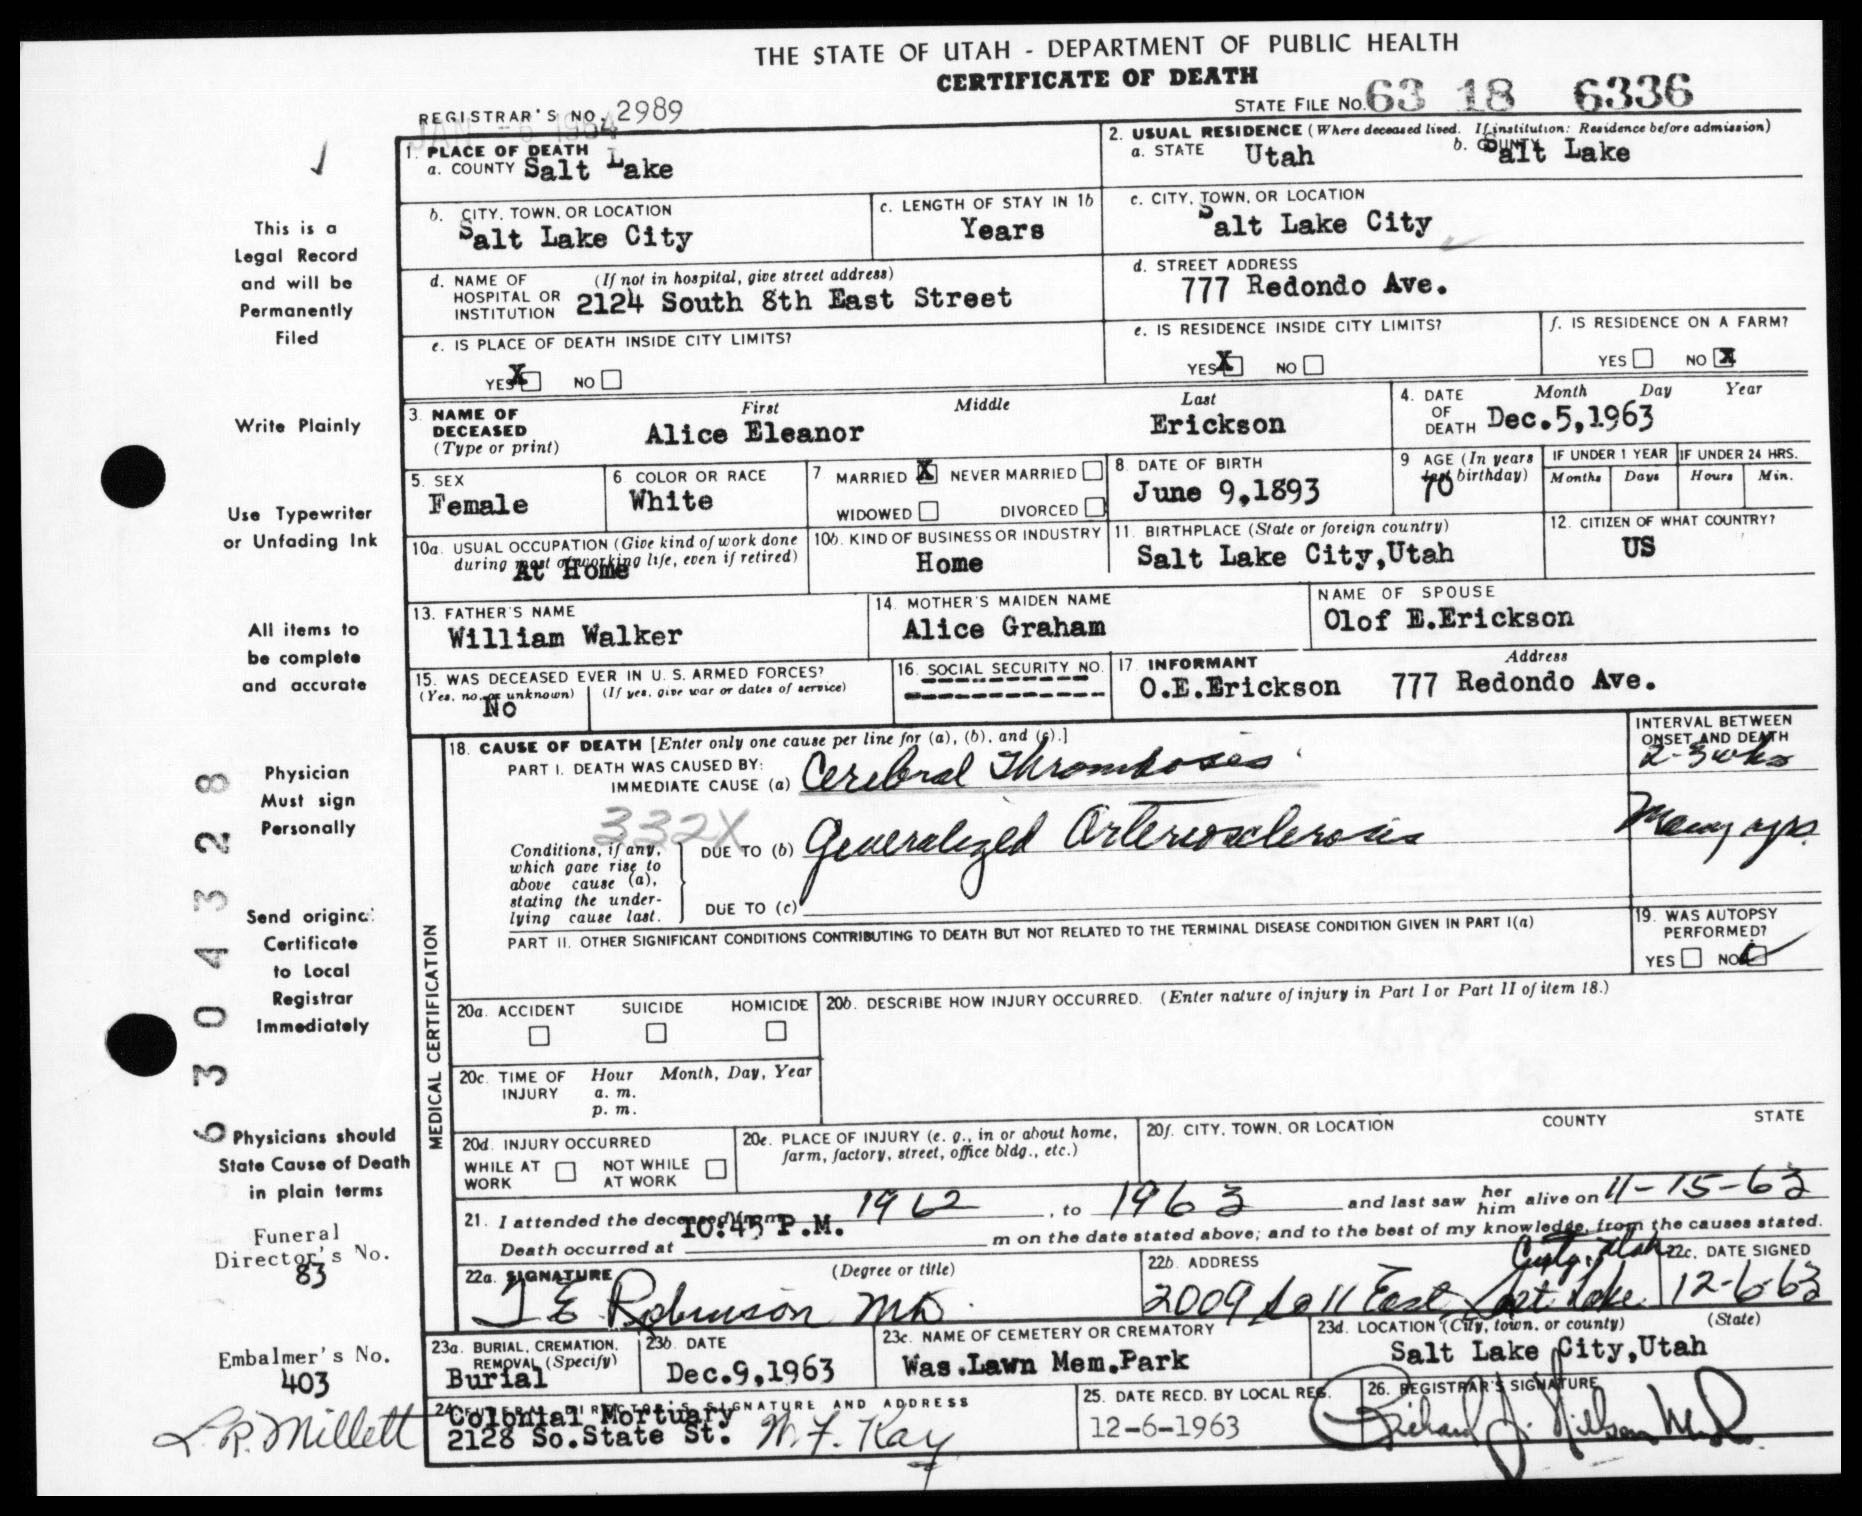 THE STATE OF UTAH - DEPARTMENT OF PUBLIC HEALTH
CERTIFICATE OF DEATH
REGISTRAR'S NO. 2989
STATE FILE NO. 63 18 6336
JAN - 6 1964
1. PLACE OF DEATH
a. COUNTY Salt Lake
2. USUAL RESIDENCE (Where deceased lived. If institution: Residence before admission)
a. STATE Utah b. COUNTY Salt Lake
b. CITY, TOWN, OR LOCATION
Salt Lake City
c. LENGTH OF STAY IN 1b
Years
c. CITY, TOWN, OR LOCATION
Salt Lake City
d. NAME OF HOSPITAL OR INSTITUTION (If not in hospital, give street address)
2124 South 8th East Street
d. STREET ADDRESS
777 Redondo Ave.
e. IS PLACE OF DEATH INSIDE CITY LIMITS?
YES X NO
e. IS RESIDENCE INSIDE CITY LIMITS?
YES X NO
f. IS RESIDENCE ON A FARM?
YES NO X
3. NAME OF DECEASED (Type or print)
First Middle Last
Alice Eleanor Erickson
4. DATE OF DEATH Month Day Year
Dec.5,1963
5. SEX
Female
6. COLOR OR RACE
White
7 MARRIED X NEVER MARRIED
WIDOWED DIVORCED
8. DATE OF BIRTH
June 9,1893
9 AGE (In years last birthday)
70
IF UNDER 1 YEAR IF UNDER 24 HRS.
Months Days Hours Min.
10a. USUAL OCCUPATION (Give kind of work done during most of working life, even if retired)
At Home
10b. KIND OF BUSINESS OR INDUSTRY
Home
11. BIRTHPLACE (State or foreign country)
Salt Lake City,Utah
12. CITIZEN OF WHAT COUNTRY?
US
13. FATHER'S NAME
William Walker
14. MOTHER'S MAIDEN NAME
Alice Graham
NAME OF SPOUSE
Olof E.Erickson
15. WAS DECEASED EVER IN U.S. ARMED FORCES?
(Yes, no, or unknown) (If yes, give war or dates of service)
No
16. SOCIAL SECURITY NO.
17. INFORMANT Address
O.E.Erickson 777 Redondo Ave.
MEDICAL CERTIFICATION
18. CAUSE OF DEATH [Enter only one cause per line for (a), (b), and (c).]
INTERVAL BETWEEN ONSET AND DEATH
PART I. DEATH WAS CAUSED BY:
IMMEDIATE CAUSE (a) Cerebral Thrombosis 2-3 wks
332X
Conditions, if any, which gave rise to above cause (a), stating the underlying cause last.
DUE TO (b) Generalized Arteriosclerosis Many yrs.
DUE TO (c)
PART II. OTHER SIGNIFICANT CONDITIONS CONTRIBUTING TO DEATH BUT NOT RELATED TO THE TERMINAL DISEASE CONDITION GIVEN IN PART I(a)
19. WAS AUTOPSY PERFORMED?
YES NO
20a. ACCIDENT SUICIDE HOMICIDE
20b. DESCRIBE HOW INJURY OCCURRED. (Enter nature of injury in Part I or Part II of item 18.)
20c. TIME OF INJURY Hour Month, Day, Year
a. m.
p. m.
20d. INJURY OCCURRED
WHILE AT WORK NOT WHILE AT WORK
20e. PLACE OF INJURY (e. g., in or about home, farm, factory, street, office bldg., etc.)
20f. CITY, TOWN, OR LOCATION COUNTY STATE
21. I attended the deceased from 1962, to 1963 and last saw her him alive on 11-15-63
Death occurred at 10:45 P.M. m on the date stated above; and to the best of my knowledge, from the causes stated.
22a. SIGNATURE (Degree or title)
T E Robinson MD.
22b. ADDRESS
2009 So 11 East Salt Lake City, Utah
22c. DATE SIGNED
12-6-63
23a. BURIAL, CREMATION, REMOVAL (Specify)
Burial
23b. DATE
Dec.9,1963
23c. NAME OF CEMETERY OR CREMATORY
Was.Lawn Mem.Park
23d. LOCATION (City, town, or county) (State)
Salt Lake City,Utah
24. FUNERAL DIRECTOR'S SIGNATURE AND ADDRESS
Colonial Mortuary
2128 So.State St. W. F. Kay
25. DATE RECD. BY LOCAL REG.
12-6-1963
26. REGISTRAR'S SIGNATURE
Richard J. Nielsen MD
This is a
Legal Record
and will be
Permanently
Filed
Write Plainly
Use Typewriter
or Unfading Ink
All items to
be complete
and accurate
Physician
Must sign
Personally
Send original
Certificate
to Local
Registrar
Immediately
Physicians should
State Cause of Death
in plain terms
Funeral
Director's No.
83
Embalmer's No.
403
L. R. Millett
6 3 0 4 3 2 8